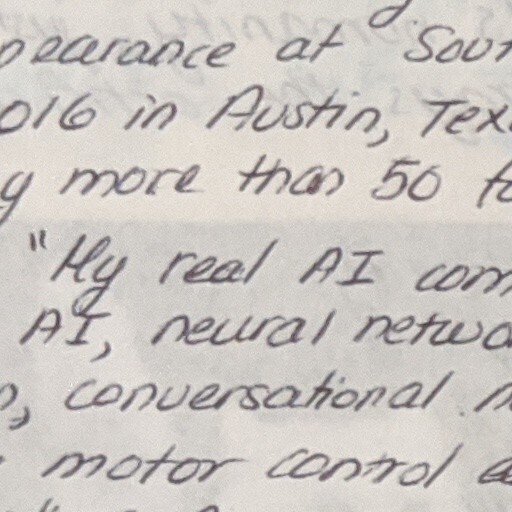 pearance at Sout
016 in Austin, Tex
y more than 50 fo
"My real AI com
AI, neural netwo
, conversational n
motor control a